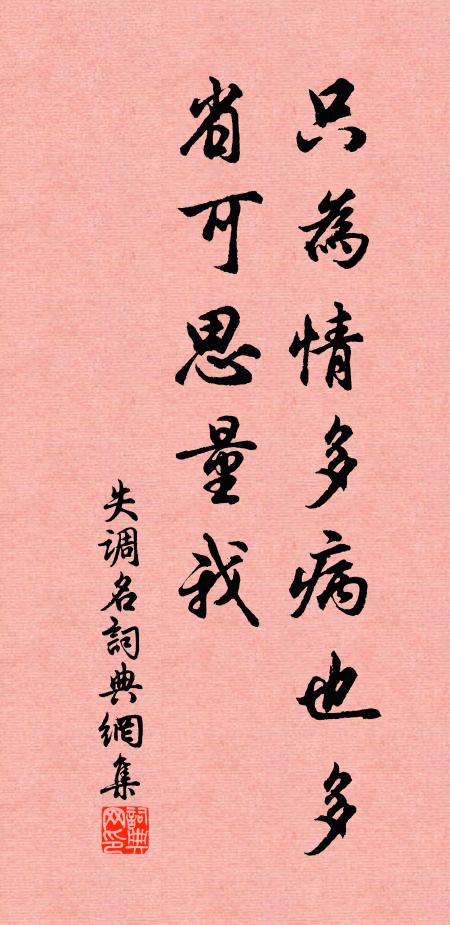 只為情多病也多
省可思量我
失调名詞典網集
詞典网印